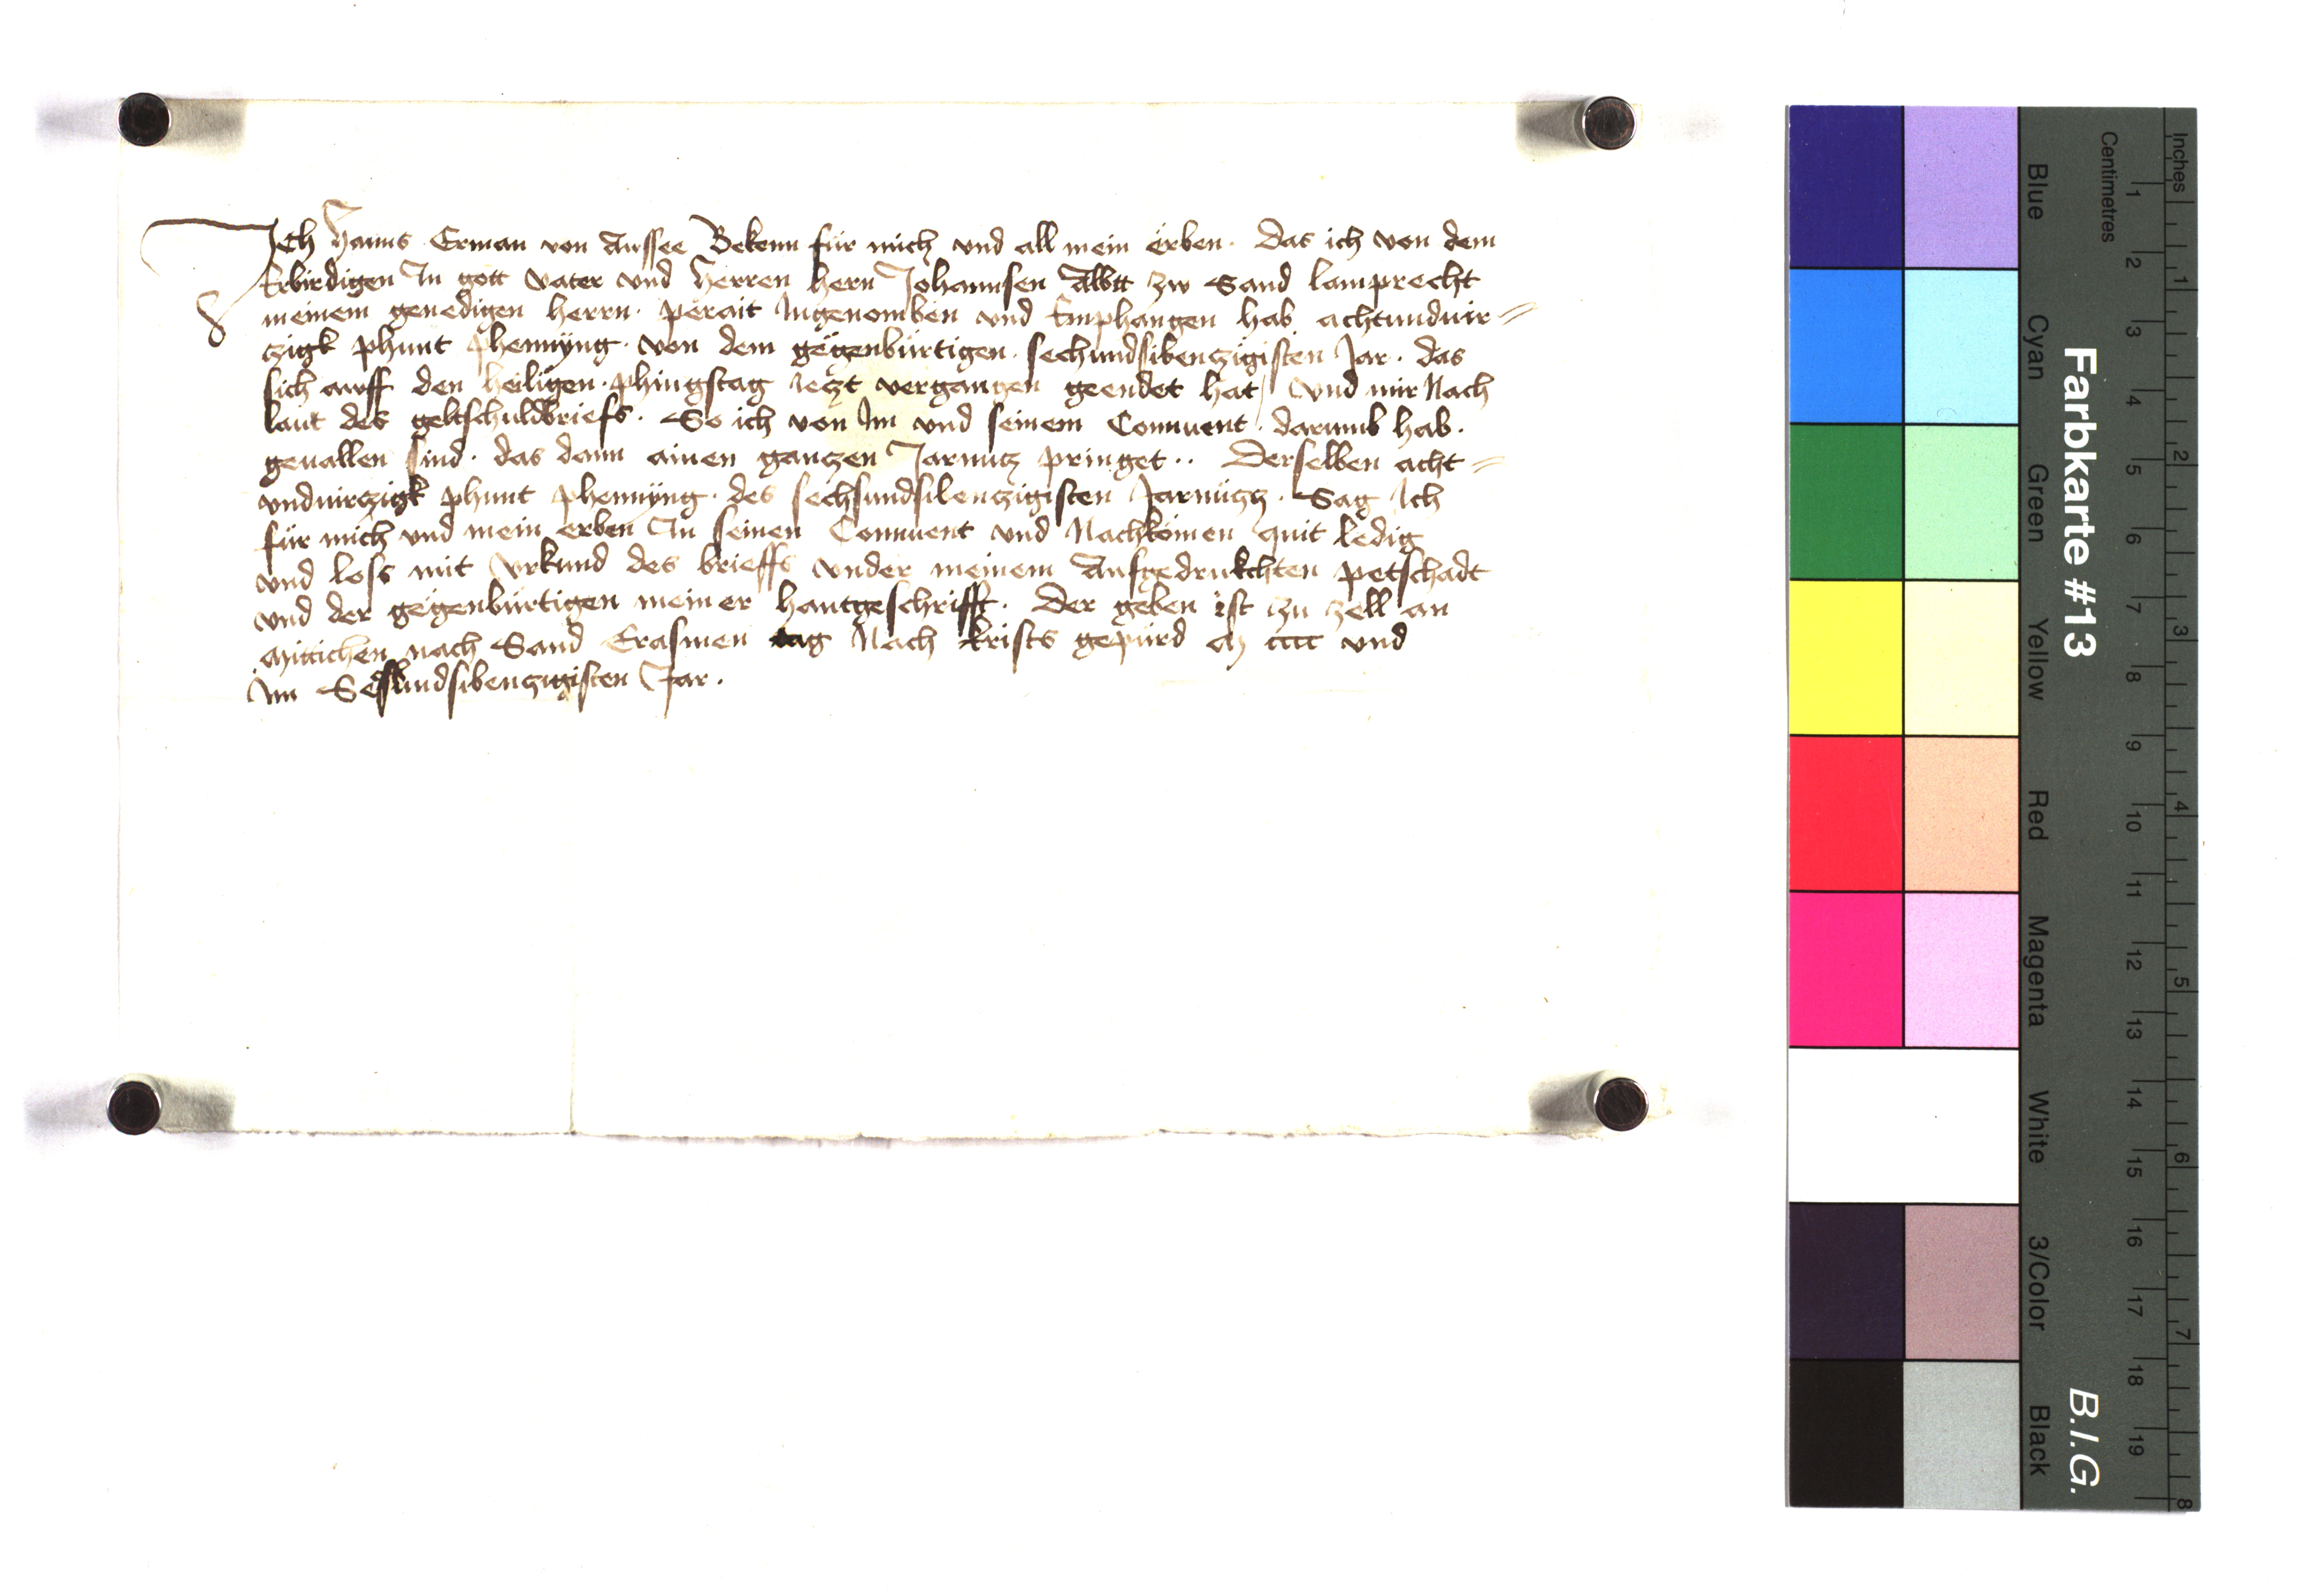 Ich Hanns Erman von Aussee Bekenn für mich vnd all mein erben. Das ich von dem
Erbirdigen In gott vater vnd Herren hern Johannsen Abbtt zw Sand lamprecht
meinem genedigen herrn. perait Ingenomben vnd Emphangen hab achtundvir=
tzigk phunt phennyng. von dem gegenbürtigen. sechundsibentzigisten Jar. das
sich awff den heiligen. phingstag Ietzt vergangen geendet hat / vnd mir Nach
laut des geltschuldbriefs. So ich von Im vnd seinem Conuent. darumb hab.
geuallen sind. das dann ainen gantzen Jarnutz pringet.. Derselben acht=
vnduirtzigk phunt phennyng. des sechsundsibentzigisten Jarnützz. Sag Ich
für mich vnd mein erben In seinen Conuent vnd Nachkömen quit ledig
vnd loss mit vrkund des brieffs vnder meinem Aufgedrukchten petschadt
vnd der gegenbürtigen meiner hantgeschrifft. Der geben ist zu zell an
Mittichen nach Sand Erasmen tag Nach krists gepürd M cccc vnd
Im Sechsundsibentzigisten Jar.
Inches
Centimetres
1 2 3 4 5 6 7 8 9 10 11 12 13 14 15 16 17 18 19
1 2 3 4 5 6 7 8
Farbkarte #13
B.I.G.
Blue
Cyan
Green
Yellow
Red
Magenta
White
3/Color
Black